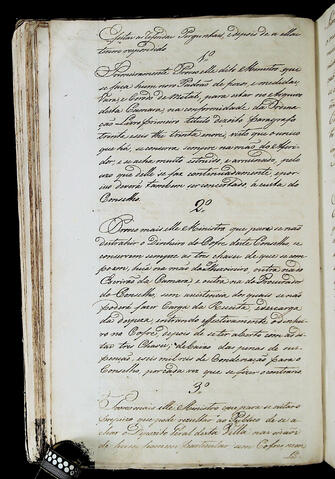 feitas as referidas Perguntas, e depois de a ellas
terem respondido
1º
Primeiramente Proveo elle dito Ministro que
se faça hum novo Padrão de pezo, e medidas
Vara e Covado de Metal, para estar no Arquivo
desta Camara, na conformidade da Ordena-
ção Livro primeiro titulo dezoito paragrafo
trinta, e seis athe trinta e nove, visto que o unico
que há, se conserva sempre na mão do Aferi-
dor, e se acha muito estruido, e arruinado, pelo
uzo que delle se faz continuadamente, e por
isso deverá tambem ser concertado, à custa do
Conselho.
2º
Proveo mais elle Ministro que para se não
distrahir o Dinheiro do Cofre deste Conselho se
conservem sempre as tres chaves de que se com-
poem, huã na mão do Thezoureiro, outra na do
Escrivão da Camara, e outra na do Procurador
do Conselho, sem assistencia dos quaes se não
poderá fazer Carga de Receita, e descarga
da despeza, entrando efectivamente o dinhei-
ro no Cofre, depois de ser aberto com as di-
tas tres Chaves, debaixo das penas de sus-
penção, e seis mil reis de Condenação para o
Conselho por cada vez que se fizer o contrario
3º
Proveo mais elle Ministro que para se evitar o
prejuizo que pode rezultar ao Publico de se a-
char o Depozito Geral desta Villa nas mãos
de hum homem particular sem Cofre, nem